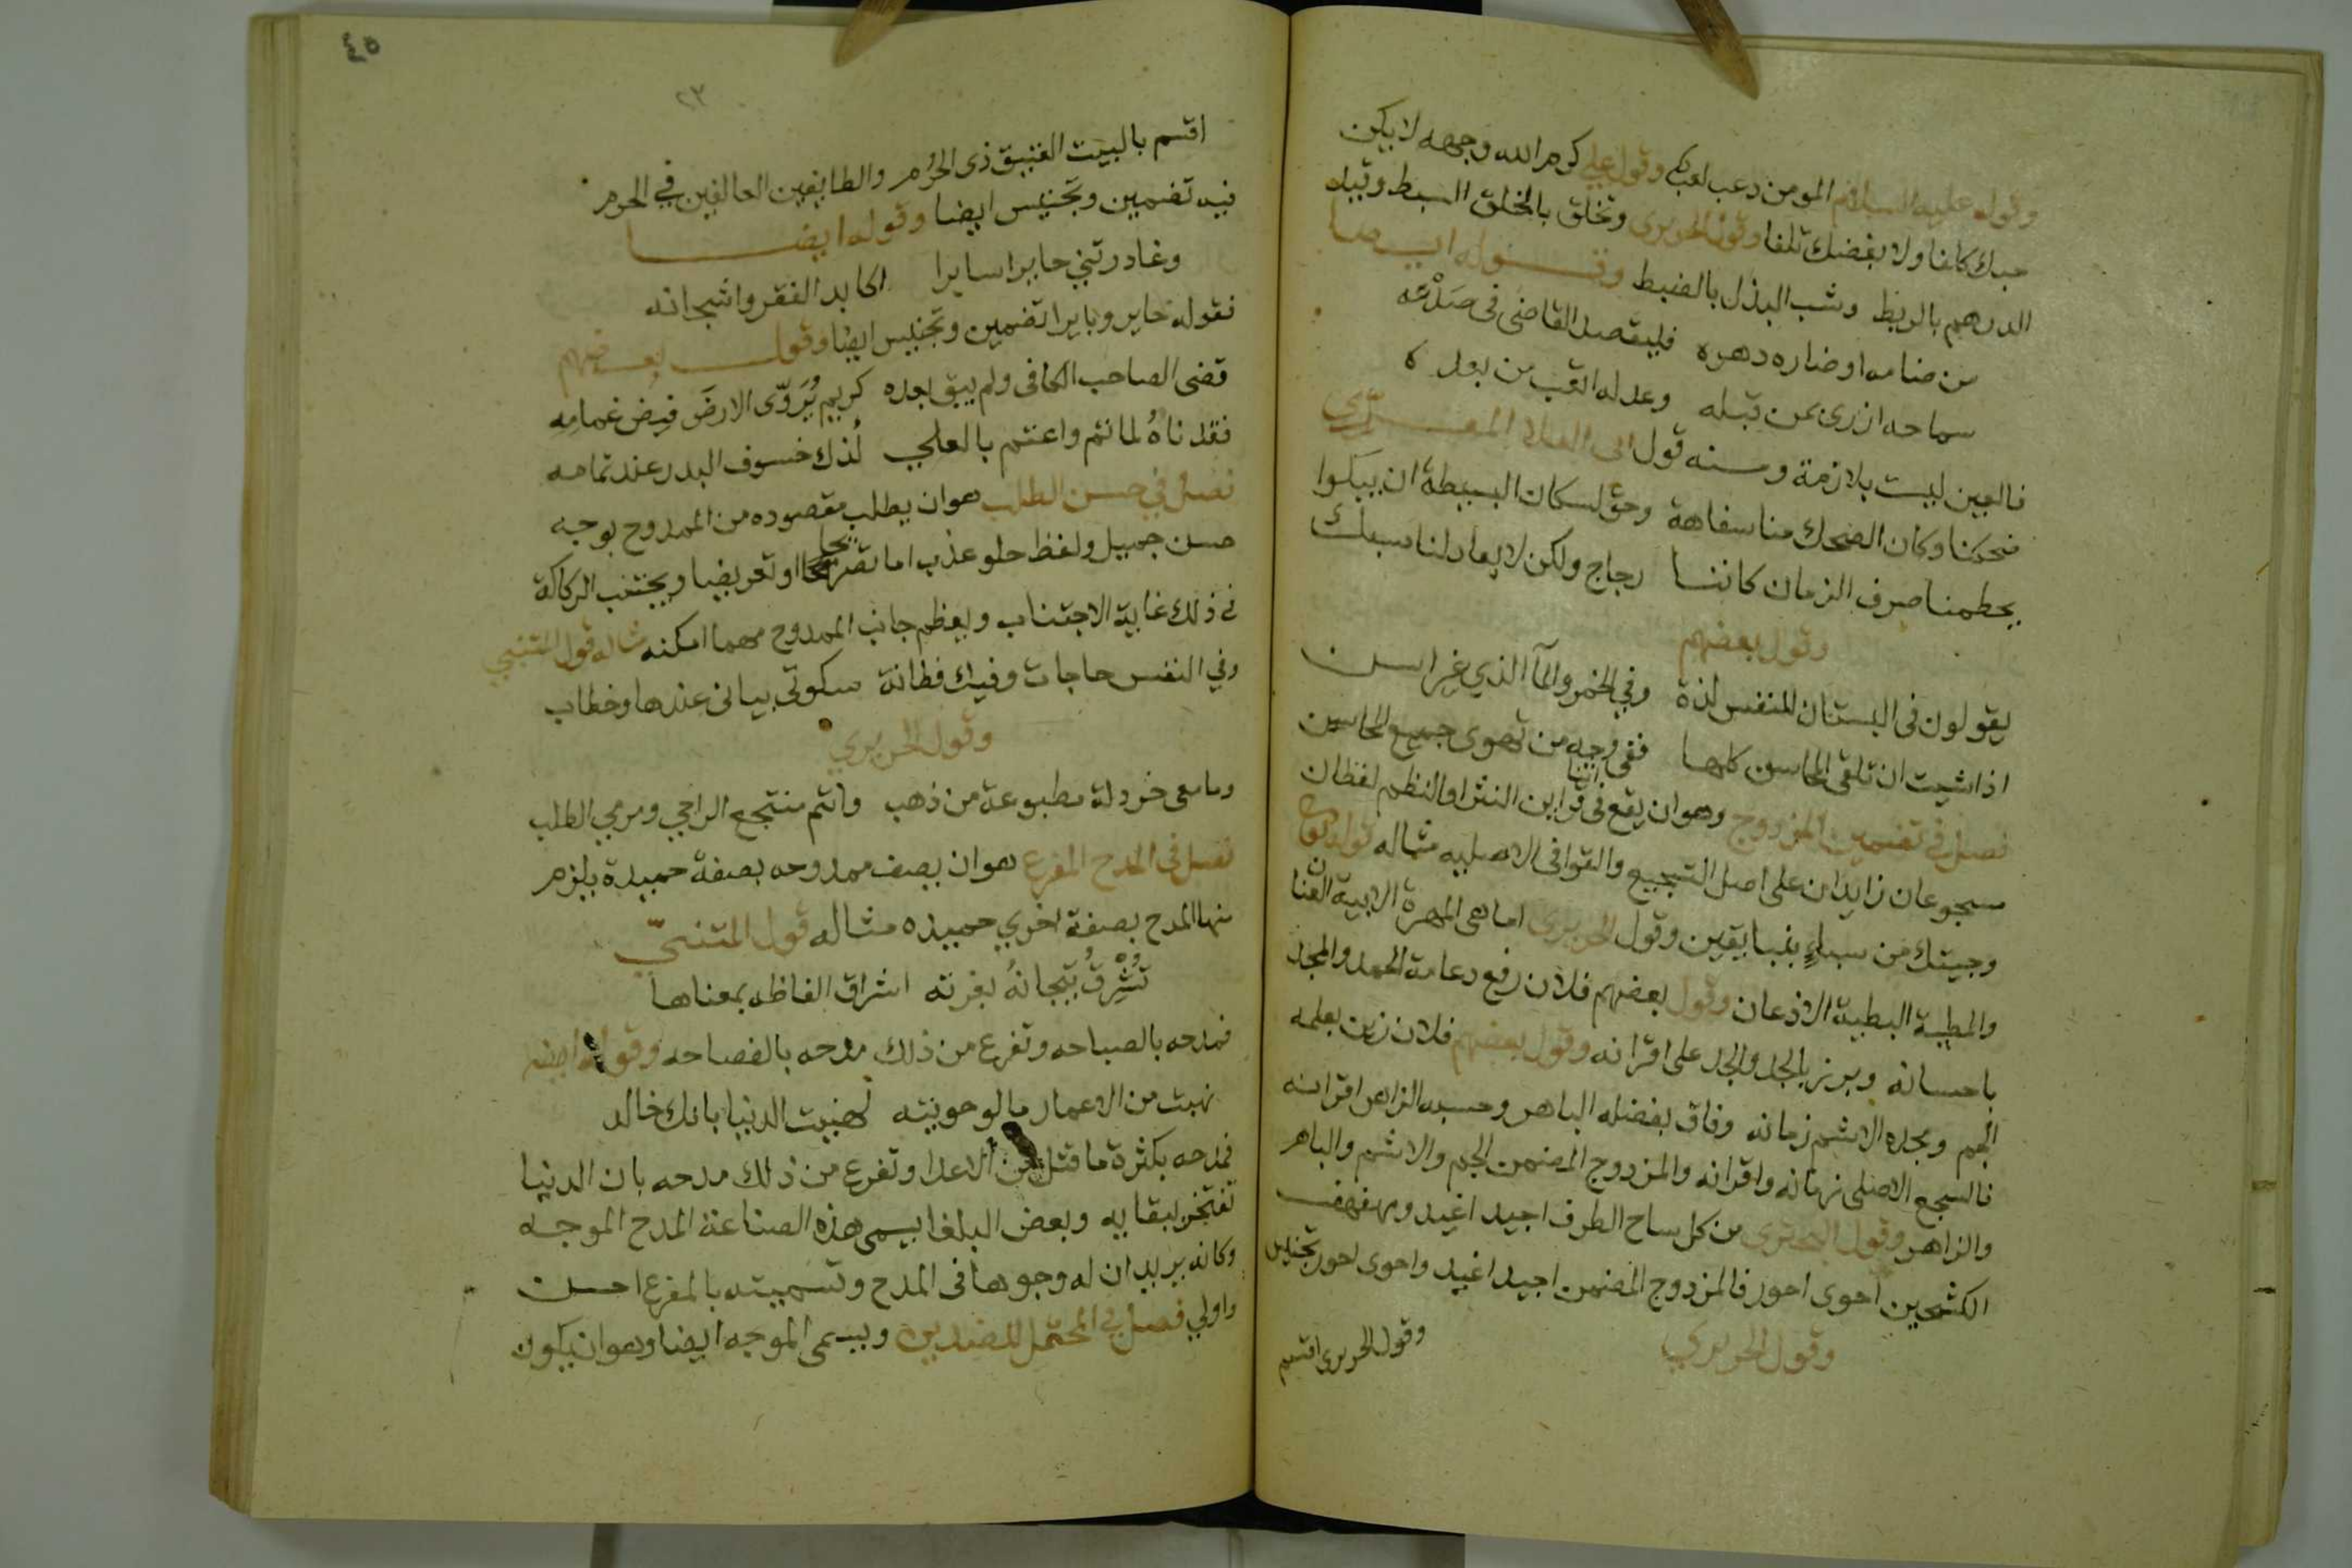 وقوله عليه السلام المومن دعب لعب وقول علي كرم الله وجهه لا يكن
حبك كلفا ولا بغضك تلفا وقول الحريرى وتخلق بالخلق السبط وقيله
الدرهم بالربط وشب البذل بالضبط وقوله ايضا
من ضامه او ضاره دهره فليقصد القاضى فى صَعْدَه
سماحه ازرى بمن قبله وعدله اتعب من بعده
فالعين ليست بلازمة ومنه قول ابى العلا المعرّى
ضحكنا وكان الضحك منا سفاهة وحق لسكان البسيطة ان يبكوا
يحطمنا صرف الزمان كاننا زجاج ولكن لا يعاد لنا سبك
وقول بعضهم
يقولون فى البستان للنفس لذة وفي الخمر والمآ الذي غير اسن
اذا شيت ان تلقى المحاسن كلها ففى وجه من تهوى جميع المحاسن
فصل في تضمين المزدوج وهو ان يقع فى اثنا قراين النثر او النظم لفظان
مسجوعان زايدان على اصل التسجيع والقوافى الاصليه مثاله قوله تعالى
وجيتك من سباءٍ بنبا يقين وقول الحريرى اما هى المهرة الابية العنان
والمطية البطية الاذعان وقول بعضهم فلان رفع دعامة الحمد والمجد
باحسانه وبرز بالجد والجد على اقرانه وقول بعضهم فلان زين بعلمه
الجم ومجده الاشم زمانه وفاق بفضله الباهر وحسبه الزاهر اقرانه
فالسجع الاصلى زمانه واقرانه والمزدوج المضمن الجم والاشم والباهر
والزاهر وقول البحترى من كل ساح الطرف اجيد اغيد ومهفهف
الكشحين احوى احور فالمزدوج المضمن اجيد اغيد واحوى احور تجنيس
وقول الحريري
وقول الحريرى اقسم
٤٥
٢٣
اقسم بالبيت العتيق ذى الحُرُم والطايفين العالفين في الحرم
فيه تضمين وتجنيس ايضا وقوله ايضا
وغادرتني حايرا سايرا اكابد الفقر واشجانه
فقوله حاير وبايرا تضمين وتجنيس ايضا وقول بعضهم
قضى الصاحب الكافى ولم يبق بعده كريم يُرَوّى الارضَ فيض غمامِهِ
فقدناهُ لما تم واعتم بالعلي لذك خسوف البدر عند تمامه
فصل في حسن الطلب هو ان يطلب مقصوده من الممدوح بوجه
حسن جميل ولفظ حلو عذب اما تصريحا او تعريضا ويجتنب الركاكة
فى ذلك غاية الاجتناب ويعظم جانب الممدوح مهما امكنه مثاله قول المتنبي
وفي النفس حاجات وفيك فطانة سكوتى بيانى عندها وخطاب
وقول الحريري
وما معى خردلة مطبوعة من ذهب وانتم منتجع الراجي ومرمي الطلب
فصل فى المدح المفرع هو ان يصف ممدوحه بصفة حميدة يلزم
منها المدح بصفة اخري حميده مثاله قول المتنبيّ
تُشْرِقُ تِيجانهُ بغرته اشراق الفاظه بمعناها
فمدحه بالصباحه وتفرع من ذلك مدحه بالفصاحه وقوله ايضا
نهبت من الاعمار ما لو حويته لهنيت الدنيا بانك خالد
فمدحه بكثرة ما قتل من الاعدا وتفرع من ذلك مدحه بان الدنيا
تفتخر ببقايه وبعض البلغا يسمى هذه الصناعة المدح الموجه
وكانه يريد ان له وجوها فى المدح وتسميته بالمفرع احسن
واولي فصل في المحتمل للضدين ويسمى الموجه ايضا وهو ان يكون